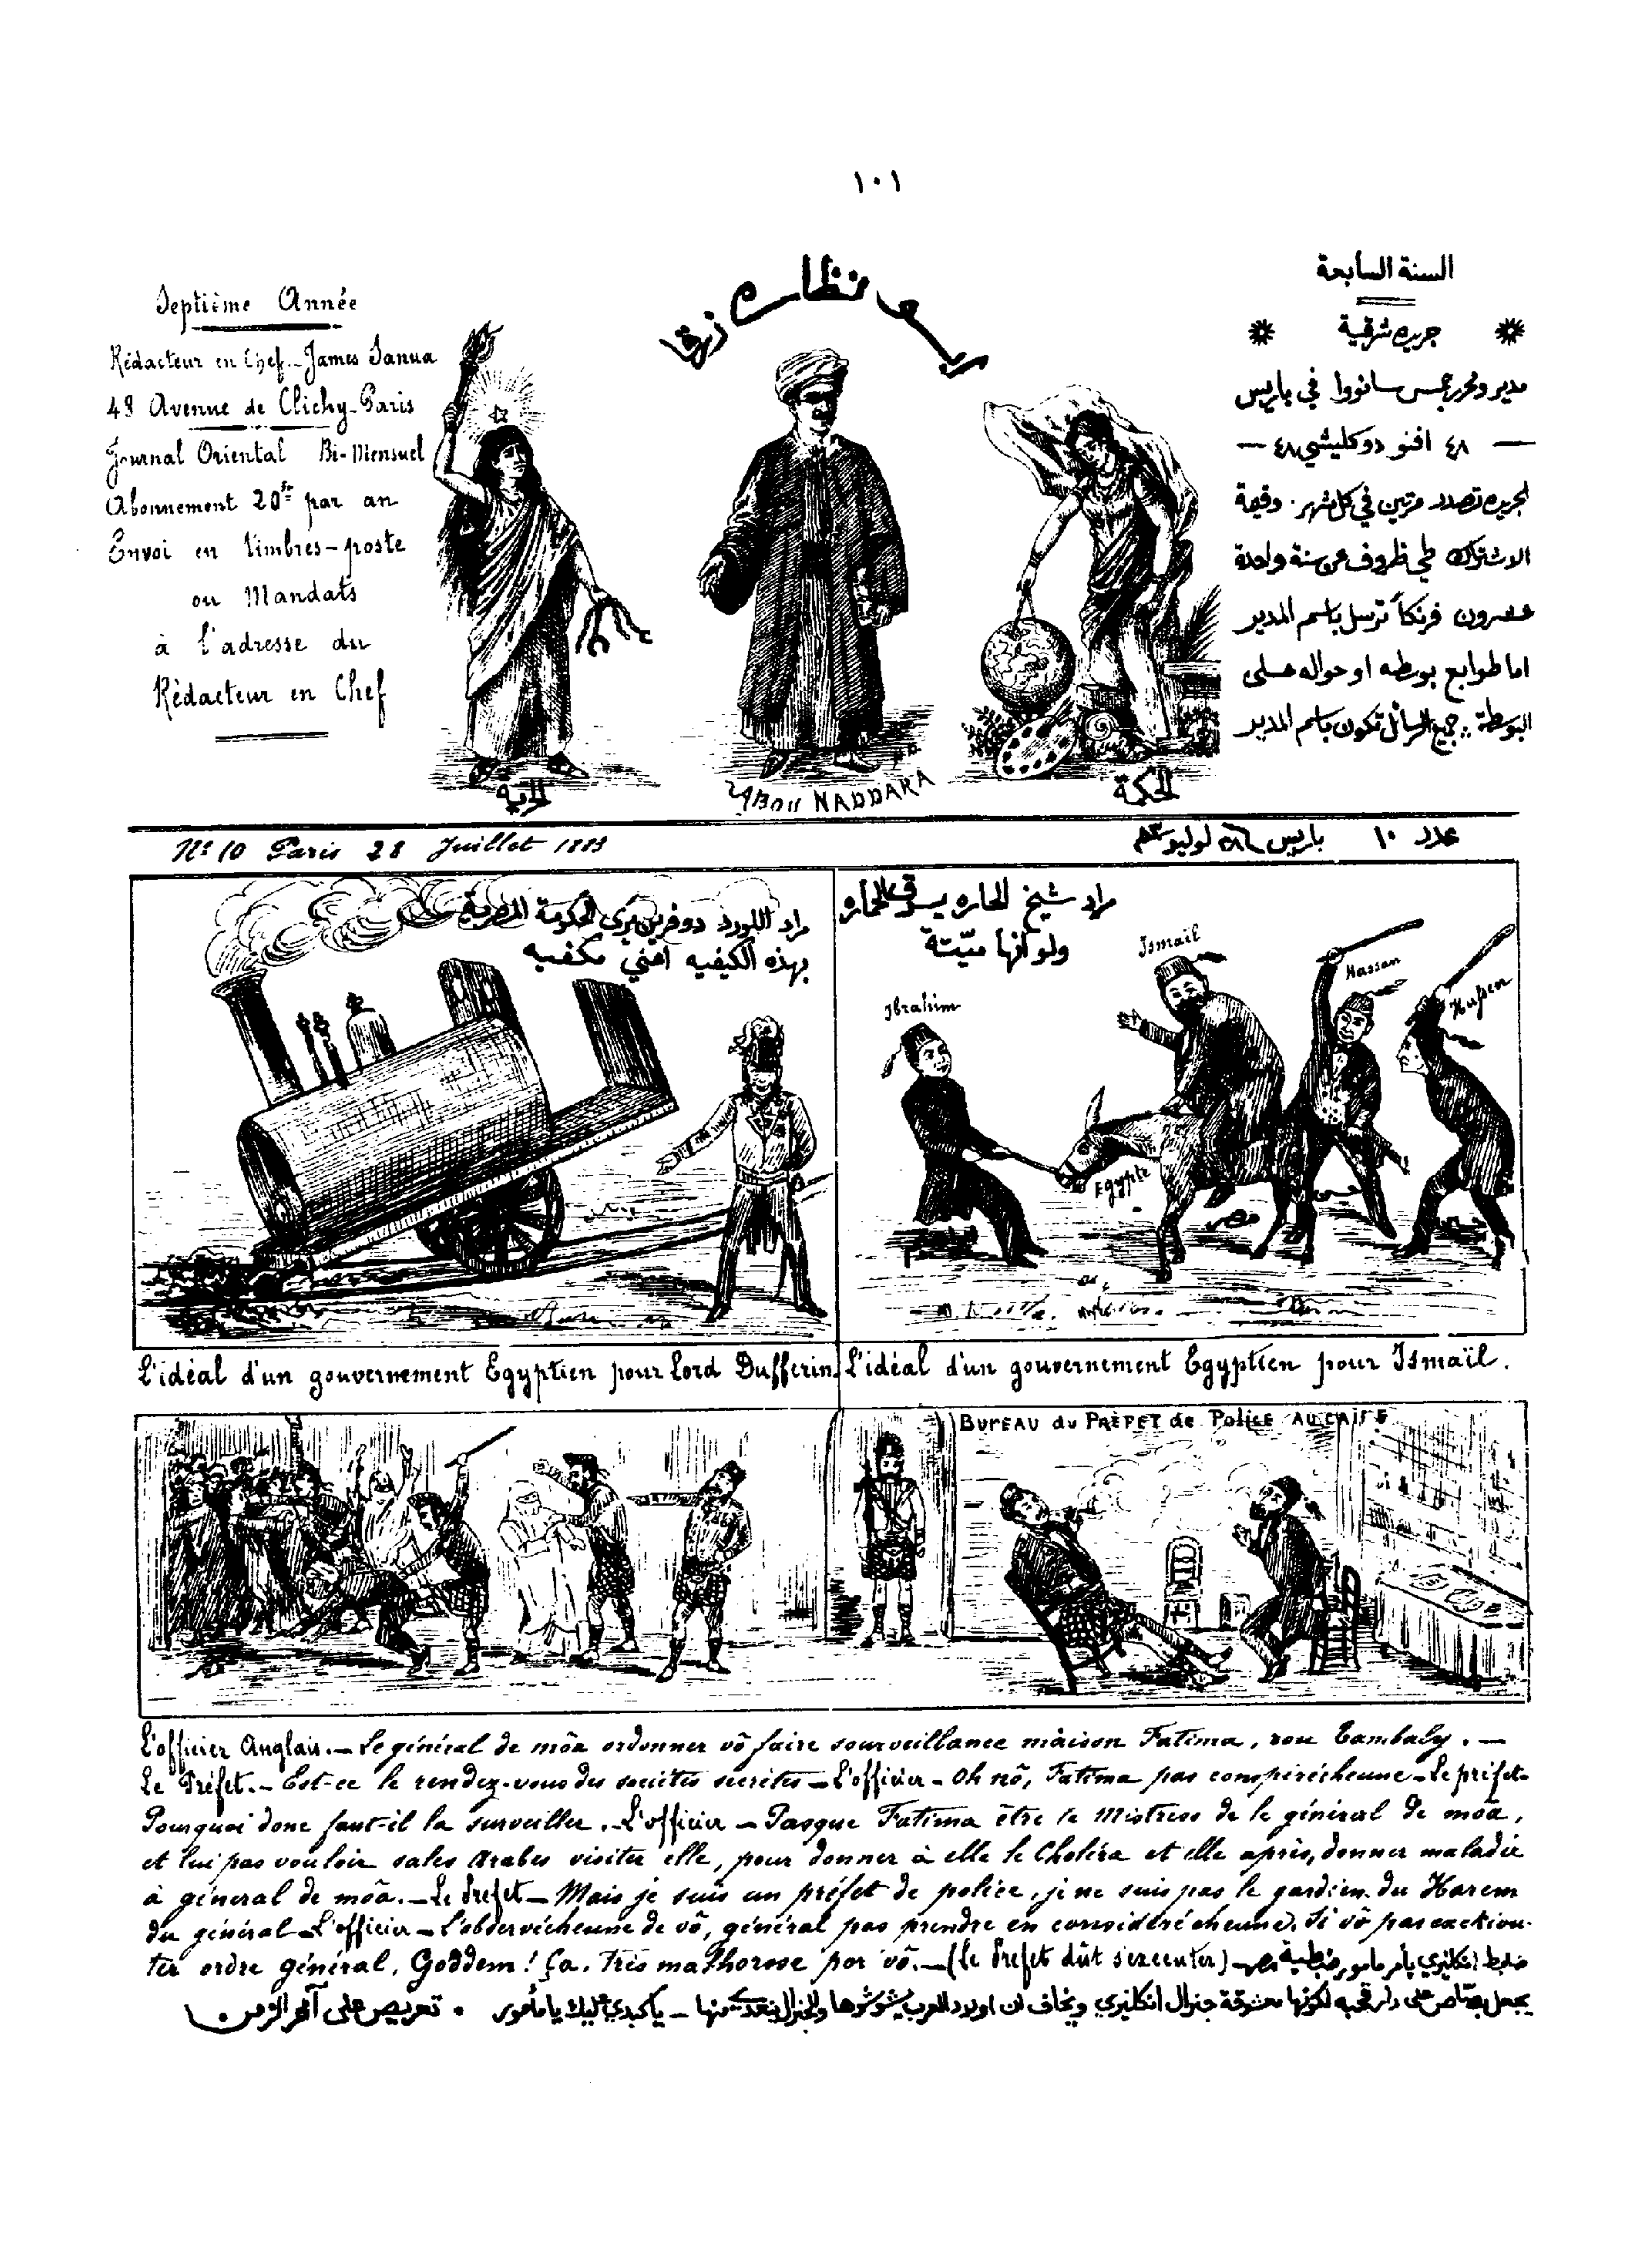 ١٠١
Septième Année
Rédacteur en Chef - James Sanua
48 Avenue de Clichy - Paris
Journal Oriental Bi-Mensuel
Abonnement 20fr par an
Envoi en timbres-poste
ou Mandats
à l'adresse du
Rédacteur en Chef
ابو نظاره زرقا
السنة السابعة
جريده شرقية
مدير ومحرر جمس سانووا في باريس
٤٨ افنو دو كليشي ٤٨
الجريده تصدر مرتين في كل شهر. وقيمة
الاشتراك طي ظروف عن سنة واحدة
عشرون فرنكاً ترسل باسم المدير
اما طوابع بوسطه او حواله على
البوسطة. جميع الرسائل تكون باسم المدير
الحرية
ABOU NADDARA
الحكمة
No 10 Paris 28 Juillet 1883
عدد ١٠ باريس ٢٨ لوليو
مراد اللورد دوفرين يرى الحكومة المصرية
بهذه الكيفيه اعني مكفيه
مراد شيخ الحاره يسوق الحماره
ولو انها ميّتة
Ismail
Hassan
Hussen
Ibrahim
Egypte
مصر
L'idéal d'un gouvernement Egyptien pour Lord Dufferin
L'idéal d'un gouvernement Egyptien pour Ismaïl.
BUREAU du PREFET de Police AU CAIRE
L'officier Anglais. — Le général de môa ordonner vô faire sourveillance màison Fatima, rou Tambaly. —
Le Préfet. — Est-ce le rendez-vous des sociétés secrètes — L'officier — Oh nô, Fatima pas conspirécheune — Le préfet —
Pourquoi donc faut-il la surveiller. — L'officier — Pasque Fatima être le Mistress de le général de môa,
et lui pas vouloir sales Arabes visiter elle, pour donner à elle le Choléra et elle après, donner maladie
à général de môa. — Le Prefet — Mais je suis un préfet de police, je ne suis pas le gardien du Harem
du général — L'officier — L'observécheune de vô, général pas prendre en considérécheune. Si vô pas exekiou-
ter ordre général, Goddem! Ça, très malhorose por vô. — (Le Prefet dût s'executer) — ضابط انكليزي يأمر مامور ضبطية مصر
يجعل بصّاص على دار قحبه لكونها معشوقة جنرال انكليزي ويخاف ان اولاد العرب يشوشوها والجنرال ينعدي منها — يا كبدي عليك يا مأمور . تعريص على آخر الزمن